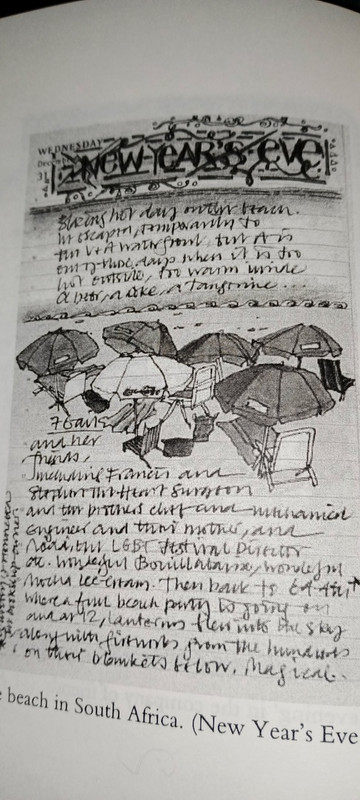 WEDNESDAY
31
NEW YEAR'S EVE
hot day on the beach.
We escaped temporarily to
the V&A waterfront, but it is
one of those days when it is too
hot outside, too warm inside
A beer, a coke, a Tangerine...
and her
friends,
including Francis and
the Heart Surgeon
and his brothers Cliff and mechanical
Engineer and their mother, and
the LGBT Festival Director
etc. Wonderful Bouillabaisse, wonderful
Mocha Ice-cream. Then back to
where a full beach party is going on
and at 12, lanterns flew into the sky
along with fireworks from the hundreds
on their blankets below. Magical.
beach in South Africa. (New Year's Eve